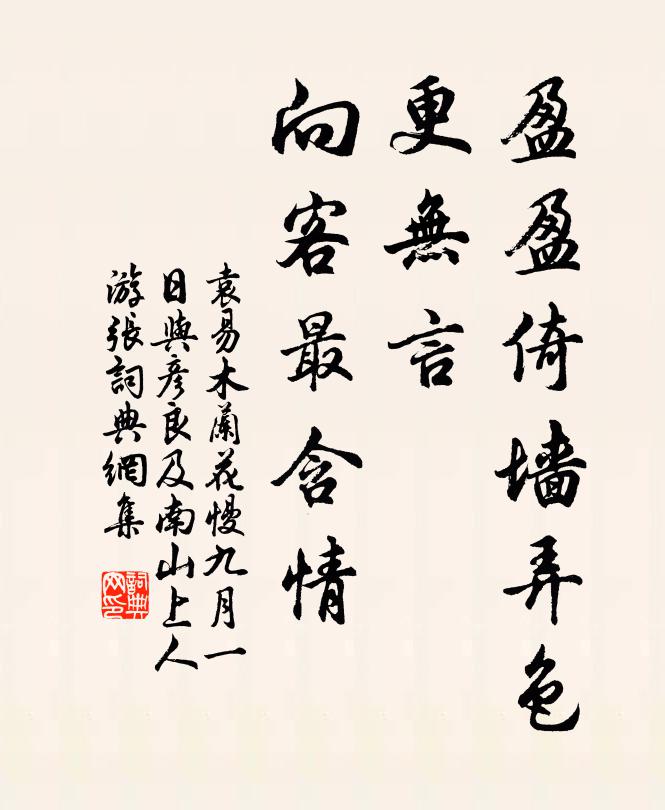 盈盈倚墙弄色
更無言
向客最含情
袁易木蘭花慢九月一
日與彥良及南山上人
游張詞典網集
詞典
网印